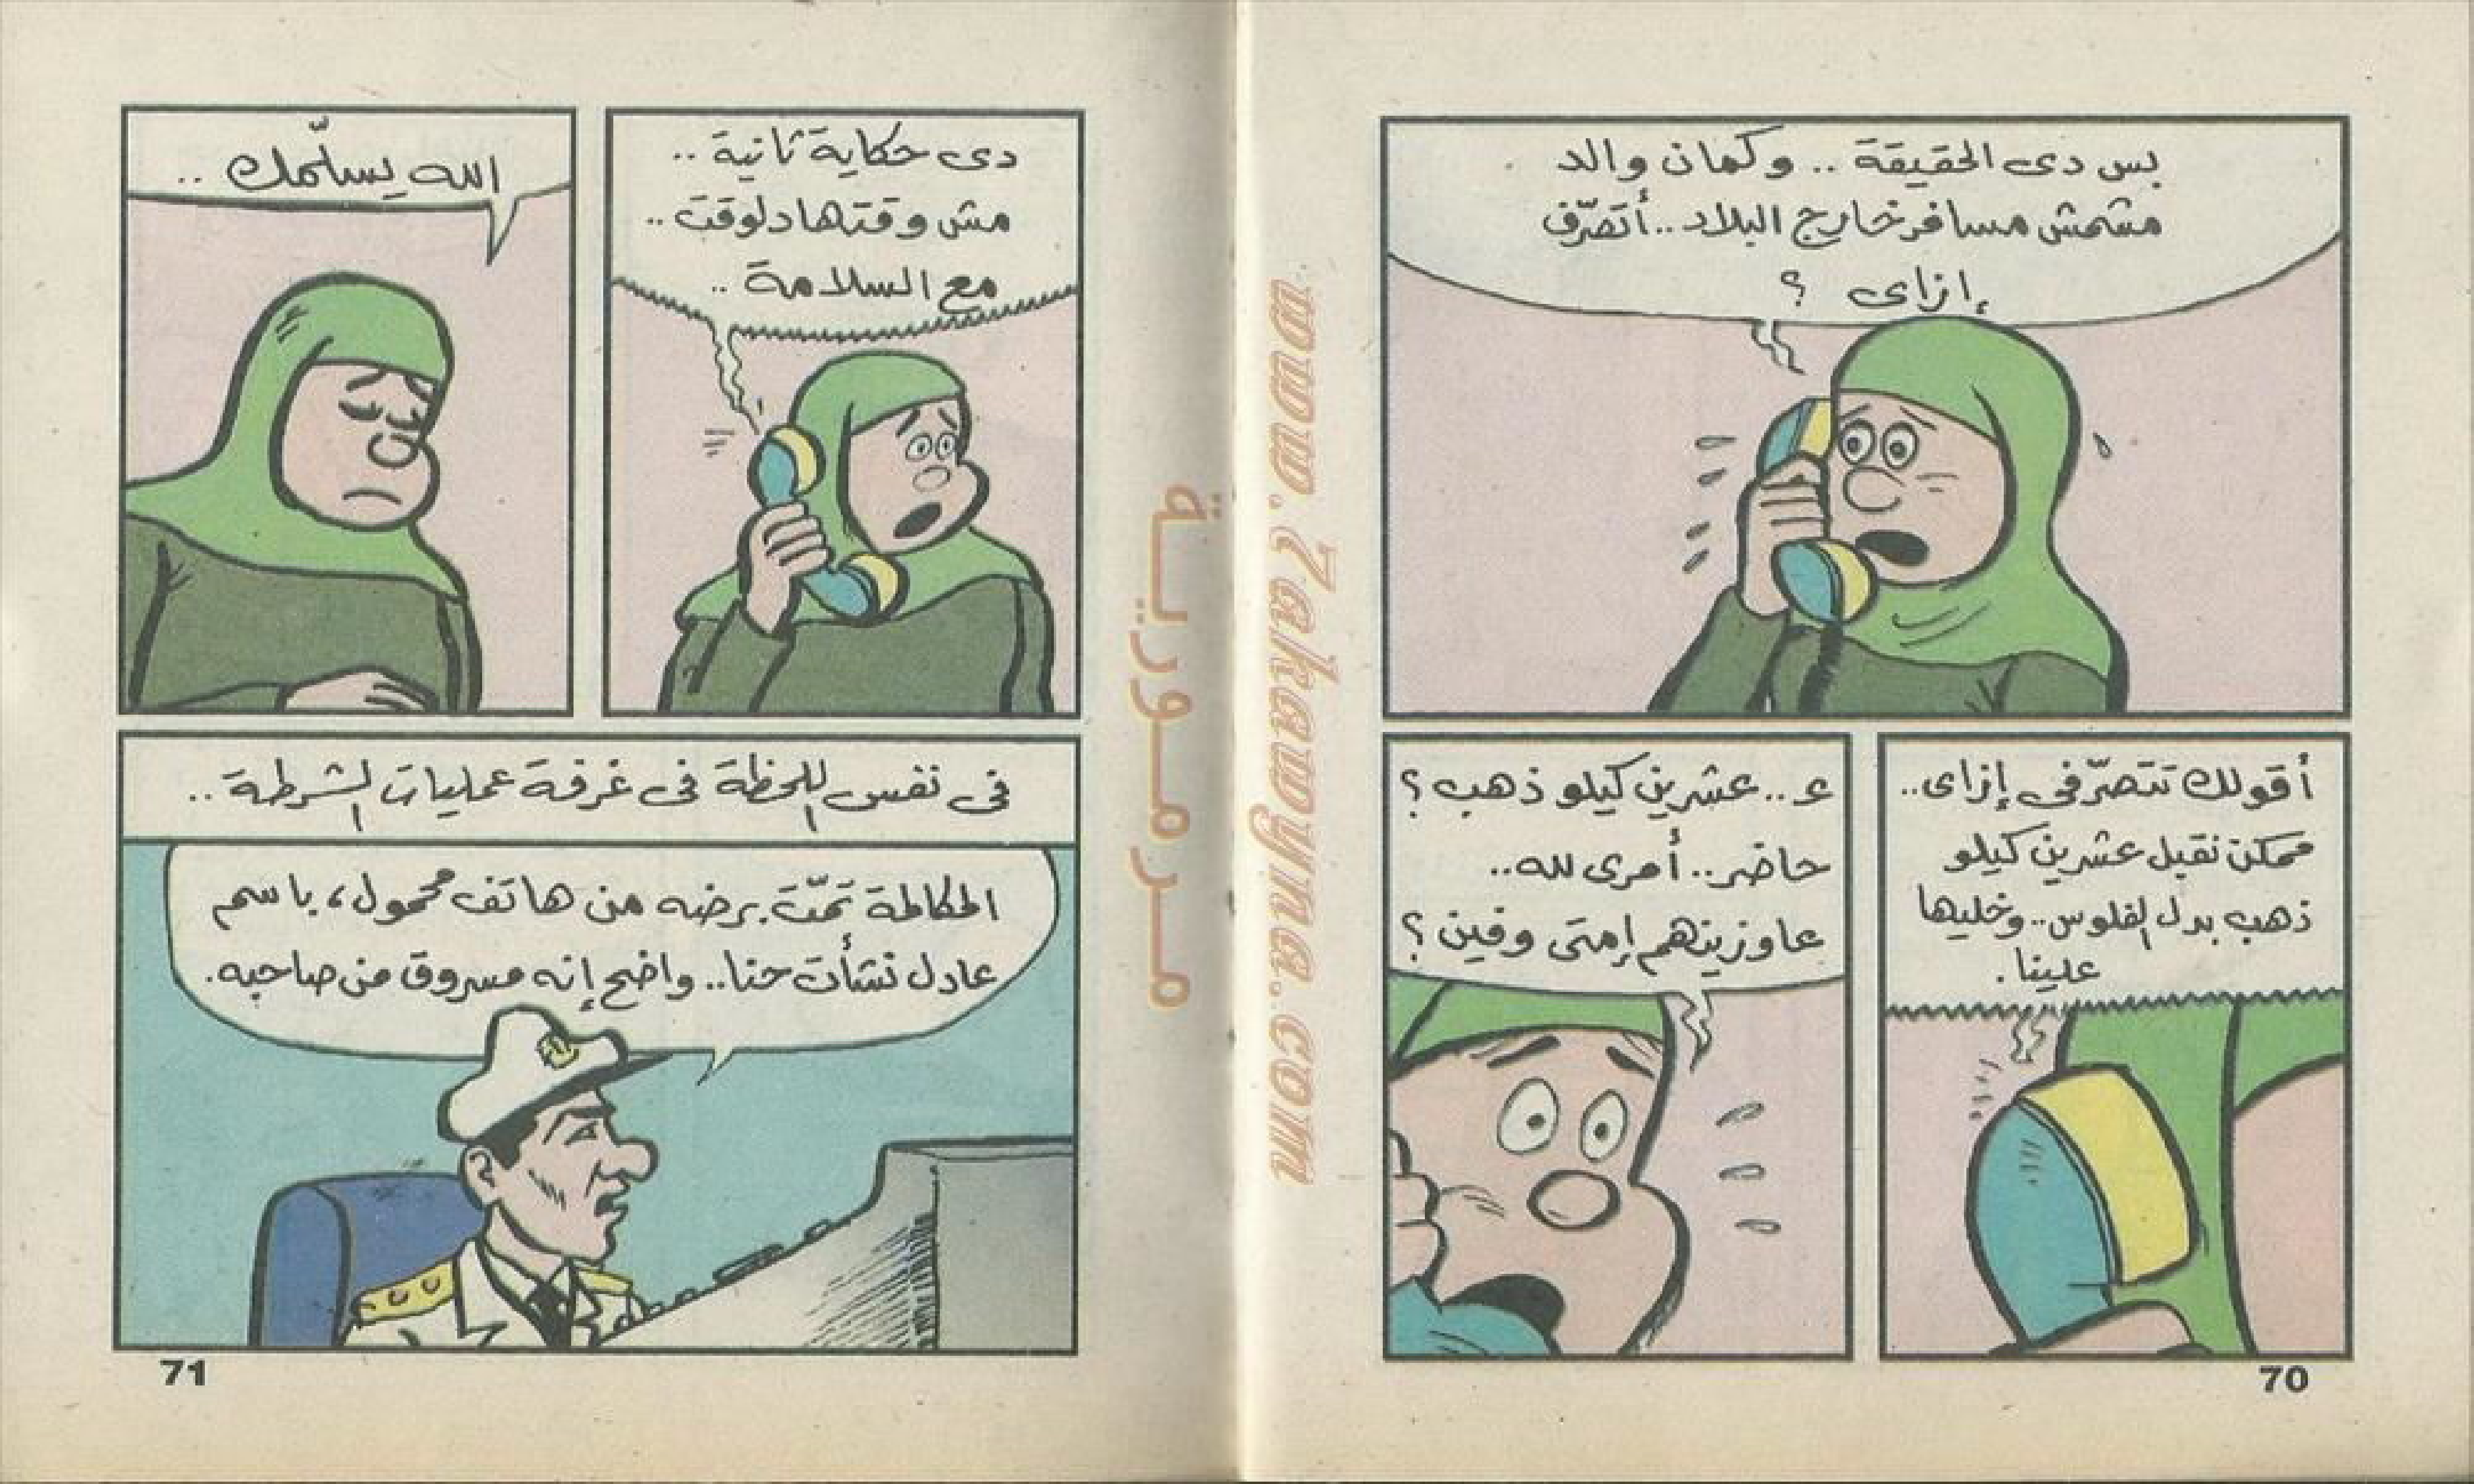 بس دى الحقيقة .. وكمان والد
مشمش مسافر خارج البلاد .. أتصرّف
إزاى ؟
أقولك تتصرّفى إزاى ..
ممكن نقبل عشرين كيلو
ذهب بدل الفلوس .. وخليها
علينا .
ع .. عشرين كيلو ذهب ؟
حاضر .. أمرى لله ..
عاوزينهم إمتى وفين ؟
70
دى حكاية ثانية ..
مش وقتها دلوقت ..
مع السلامة ..
الله يسلّمك ..
فى نفس اللحظة فى غرفة عمليات الشرطة ..
المكالمة تمّت برضه من هاتف محمول ، باسم
عادل نشأت حنا .. واضح إنه مسروق من صاحبه .
71
مرمورية
www.Zakawyna.com